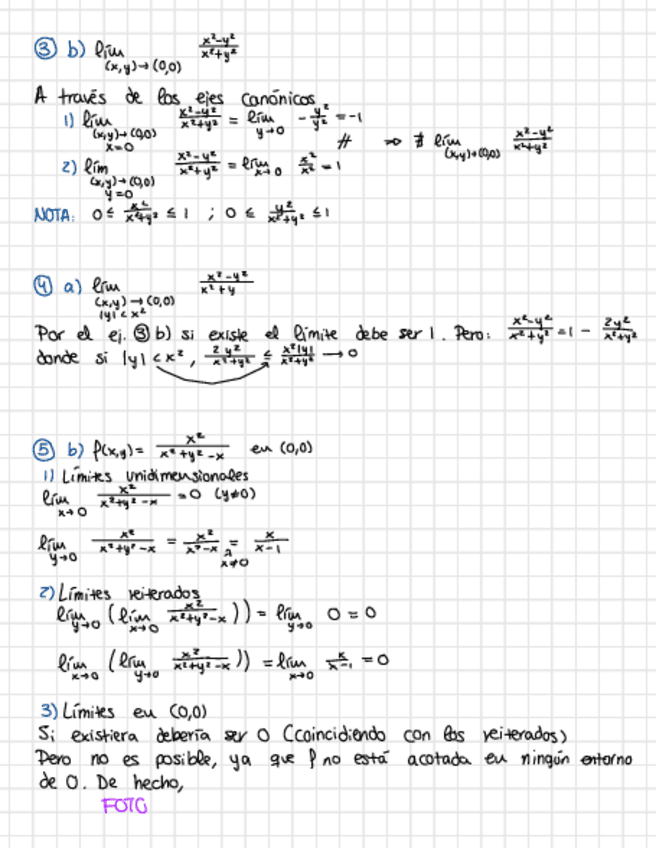 ③ b) lím (x,y)→(0,0) (x²-y²)/(x²+y²)
A través de los ejes canónicos
1) lím (x,y)→(0,0) x=0 (x²-y²)/(x²+y²) = lím y→0 -y²/y² = -1
≠ ⇒ ∄ lím (x,y)→(0,0) (x²-y²)/(x²+y²)
2) lím (x,y)→(0,0) y=0 (x²-y²)/(x²+y²) = lím x→0 x²/x² = 1
NOTA: 0 ≤ x²/(x²+y²) ≤ 1 ; 0 ≤ y²/(x²+y²) ≤ 1
④ a) lím (x,y)→(0,0) |y|<x² (x²-y²)/(x²+y)
Por el ej. ③ b) si existe el límite debe ser 1. Pero: (x²-y²)/(x²+y²) = 1 - 2y²/(x²+y²)
donde si |y| < x², 2y²/(x²+y²) ≤ x²|y|/(x²+y²) → 0
⑤ b) f(x,y) = x²/(x²+y²-x) en (0,0)
1) Límites unidimensionales
lím x→0 x²/(x²+y²-x) = 0 (y≠0)
lím y→0 x²/(x²+y²-x) = x²/(x²-x) = x≠0 x/(x-1)
2) Límites reiterados
lím y→0 (lím x→0 x²/(x²+y²-x))) = lím y→0 0 = 0
lím x→0 (lím y→0 x²/(x²+y²-x))) = lím x→0 x/(x-1) = 0
3) Límites en (0,0)
Si existiera debería ser 0 (coincidiendo con los reiterados)
Pero no es posible, ya que f no está acotada en ningún entorno
de 0. De hecho,
FOTO